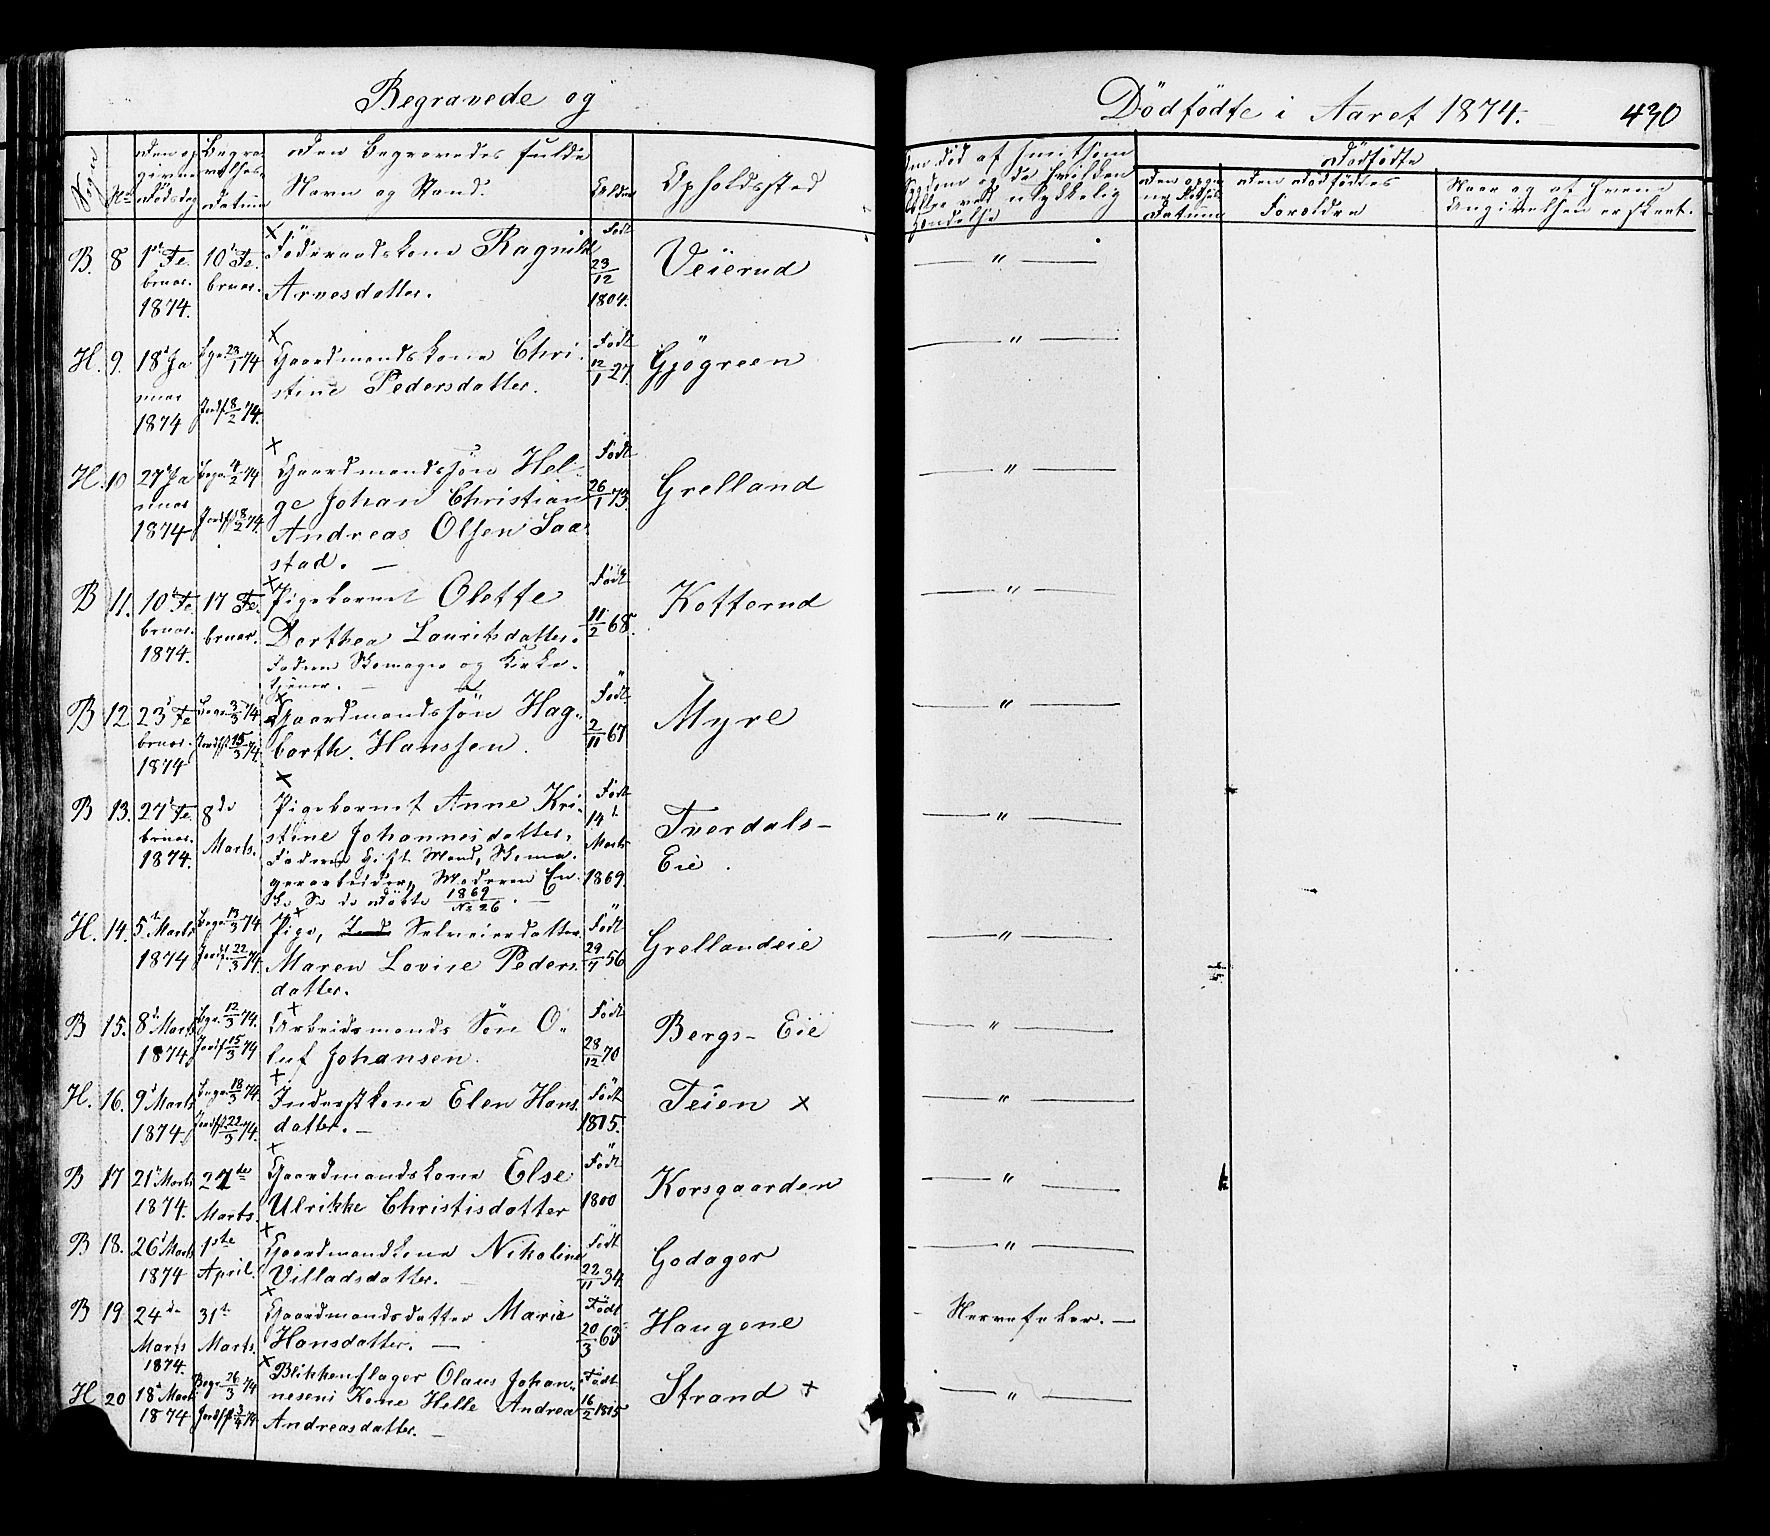 Begravede og
Dödfödte i Aaret 1874.
430
Sogn
No
Den op
givne
Dødsdag
Begra
velses
Datum
Den Begravedes fulde
Navn og Stand.
Alder
Opholdssted
Om død af smitsom
Sygdom og da hvilken
eller ved ulykkelig
Hændelse
Dødfødte
Datum
Den Dødfødtes
Forældre
Naar og af hvem
Angivelsen er skeet.
B. 8 1ste Fe-
bruar.
1874.
10de Fe-
bruar.
Föderaadskone Ragnild
Arnesdatter.
Födt
23/12
1804.
Veierud
— " —
H. 9. 18de Ja
nuar
1874
Bgr. 23/1 74
Jordf. 8/2 74.
Gaardmandskone Chri-
stine Pedersdatter.
Födt
12/1 27.
Gjøgreen
— " —
H. 10 27de Ja
nuar
1874
Begr. 4/2 74
Jordf. 18/2 74.
Gaardmandssøn Hel-
ge Johan Christian
Andreas Olsen Saa-
stad. —
Födt
26/1 73.
Grelland
— " —
B 11. 10de Fe-
bruar.
1874.
17 Fe-
bruar.
Pigebarnet Olette
Dorthea Lauritsdatter.
Faderen Skomager og Kirke-
tjener. —
Födt
11/2 68.
Kotterud
— " —
B 12 23de Fe
bruar.
1874
Begr. 3/3 74.
Jordf. 15/3 74.
Gaardmandssøn Hag-
barth. Hanssen.
Födt
2/11 67
Myre
— " —
B 13. 27de Fe-
bruar.
1874.
8de
Marts.
Pigebarnet Anne Kri-
stine Johannesdatter.
Faderen Gift Mand, Skoma-
gerarbeider, Moderen En-
ke Se de Døbte 1869/No 26. —
Födt
14de
Marts
1869.
Tverdals-
Eie.
— " —
H. 14. 5te Marts
1874
Begr. 13/3 74.
Jordf. 22/3 74.
Pige, Selveierdatter
Maren Lovise Peders
datter.
Födt
29/1 56
Grellandeie
— " —
B 15. 8de Marts
1874
Bgr. 12/3 74.
Jordf. 15/3 74
Arbeidsmands Søn O-
luf Johansen.
Födt
28/12 70
Bergs-Eie
— " —
H. 16. 9de Marts
1874
Begr. 18/3 74.
Jordf. 22/3 74.
Inderstkone Elen Hans
datter. —
Födt
1815.
Teien x
— " —
B 17 21de Marts
1874.
27de
Marts.
Gaardmandskone Else
Ulrikke Christisdatter
Födt
1800
Korsgaarden
— " —
B 18. 26de Marts
1874
1ste
April.
Gaardmandkone Nikoline
Villadsdatter. —
Födt
22/11 34.
Godager
— " —
B 19 24de
Marts
1874.
31te
Marts.
Gaardmandsdatter Marie
Hansdatter. —
Födt
20/3 63
Haugene
Nervefeber. —
H 20 18de Marts
1874
Begr. 26/3 74
Jordf. 3/4 74
Blikkenslager Olaus Johan-
nesens Kone Helle Andrea
Andreasdatter. —
Födt
16/2 1815
Strand +
— " —